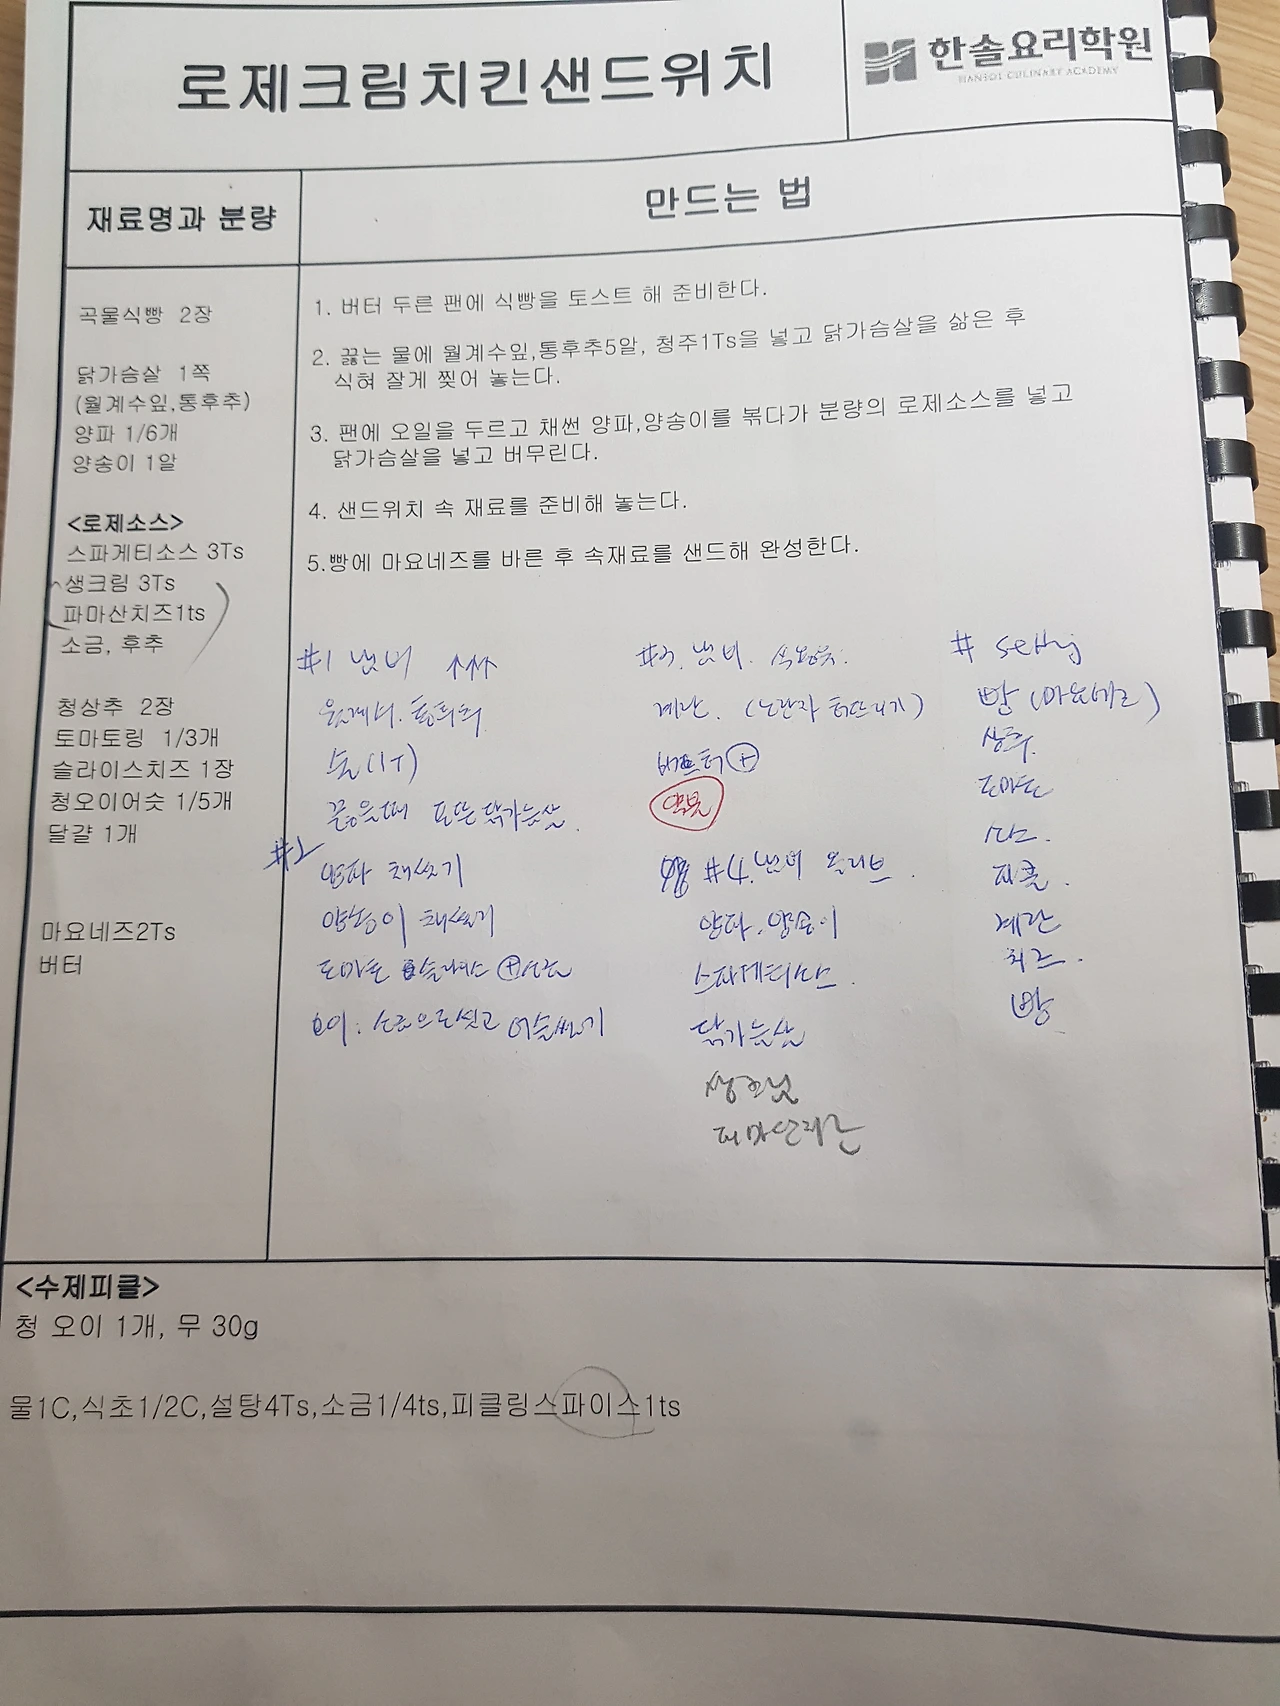 로제크림치킨샌드위치
한솔요리학원
HANSOL CULINARY ACADEMY
재료명과 분량
만드는 법
곡물식빵 2장
닭가슴살 1쪽
(월계수잎,통후추)
양파 1/6개
양송이 1알
<로제소스>
스파게티소스 3Ts
생크림 3Ts
파마산치즈1ts
소금, 후추
청상추 2장
토마토링 1/3개
슬라이스치즈 1장
청오이어슷 1/5개
달걀 1개
마요네즈2Ts
버터
1. 버터 두른 팬에 식빵을 토스트 해 준비한다.
2. 끓는 물에 월계수잎,통후추5알, 청주1Ts을 넣고 닭가슴살을 삶은 후
식혀 잘게 찢어 놓는다.
3. 팬에 오일을 두르고 채썬 양파,양송이를 볶다가 분량의 로제소스를 넣고
닭가슴살을 넣고 버무린다.
4. 샌드위치 속 재료를 준비해 놓는다.
5.빵에 마요네즈를 바른 후 속재료를 샌드해 완성한다.
#1 냄비
술(1T)
끓을때 닭가슴살
#2
양파 채썰기
양송이 채썰기
토마토 슬라이스
오이. 소금으로씻고 어슬썰기
#3. 냄비.
계란. (노란자 터뜨리기)
버터 +
약불
#4. 냄비 올리브.
양파. 양송이
스파게티소스.
닭가슴살
생크림
파마산치즈
# setting
빵 (마요네즈)
상추.
토마토
소스.
피클.
계란
치즈.
빵
<수제피클>
청 오이 1개, 무 30g
물1C,식초1/2C,설탕4Ts,소금1/4ts,피클링스파이스1ts